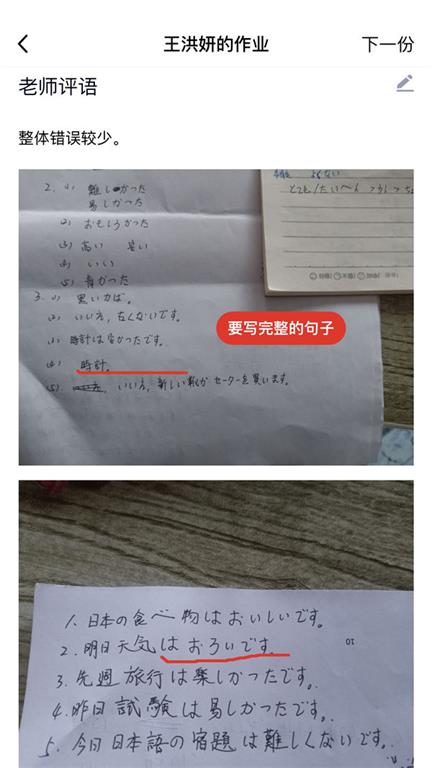 王洪妍的作业
下一份
老师评语
整体错误较少。
2. (1) 難しかった
易しかった
(2) おもしろかった
(3) 高い
(4) いい
(5) 青かった
3. (1)
(2) いいえ,
要写完整的句子
(3) 時計は安かったです。
(4) 時計。
(5) いいえ, 新しい セーターを買います。
1. 日本の食べ物はおいしいです。
2. 明日天気はおろいです。
3. 先週旅行は楽しかったです。
4. 昨日試験は易しかったです。
5. 今日日本語の宿題は難しくないです。
10